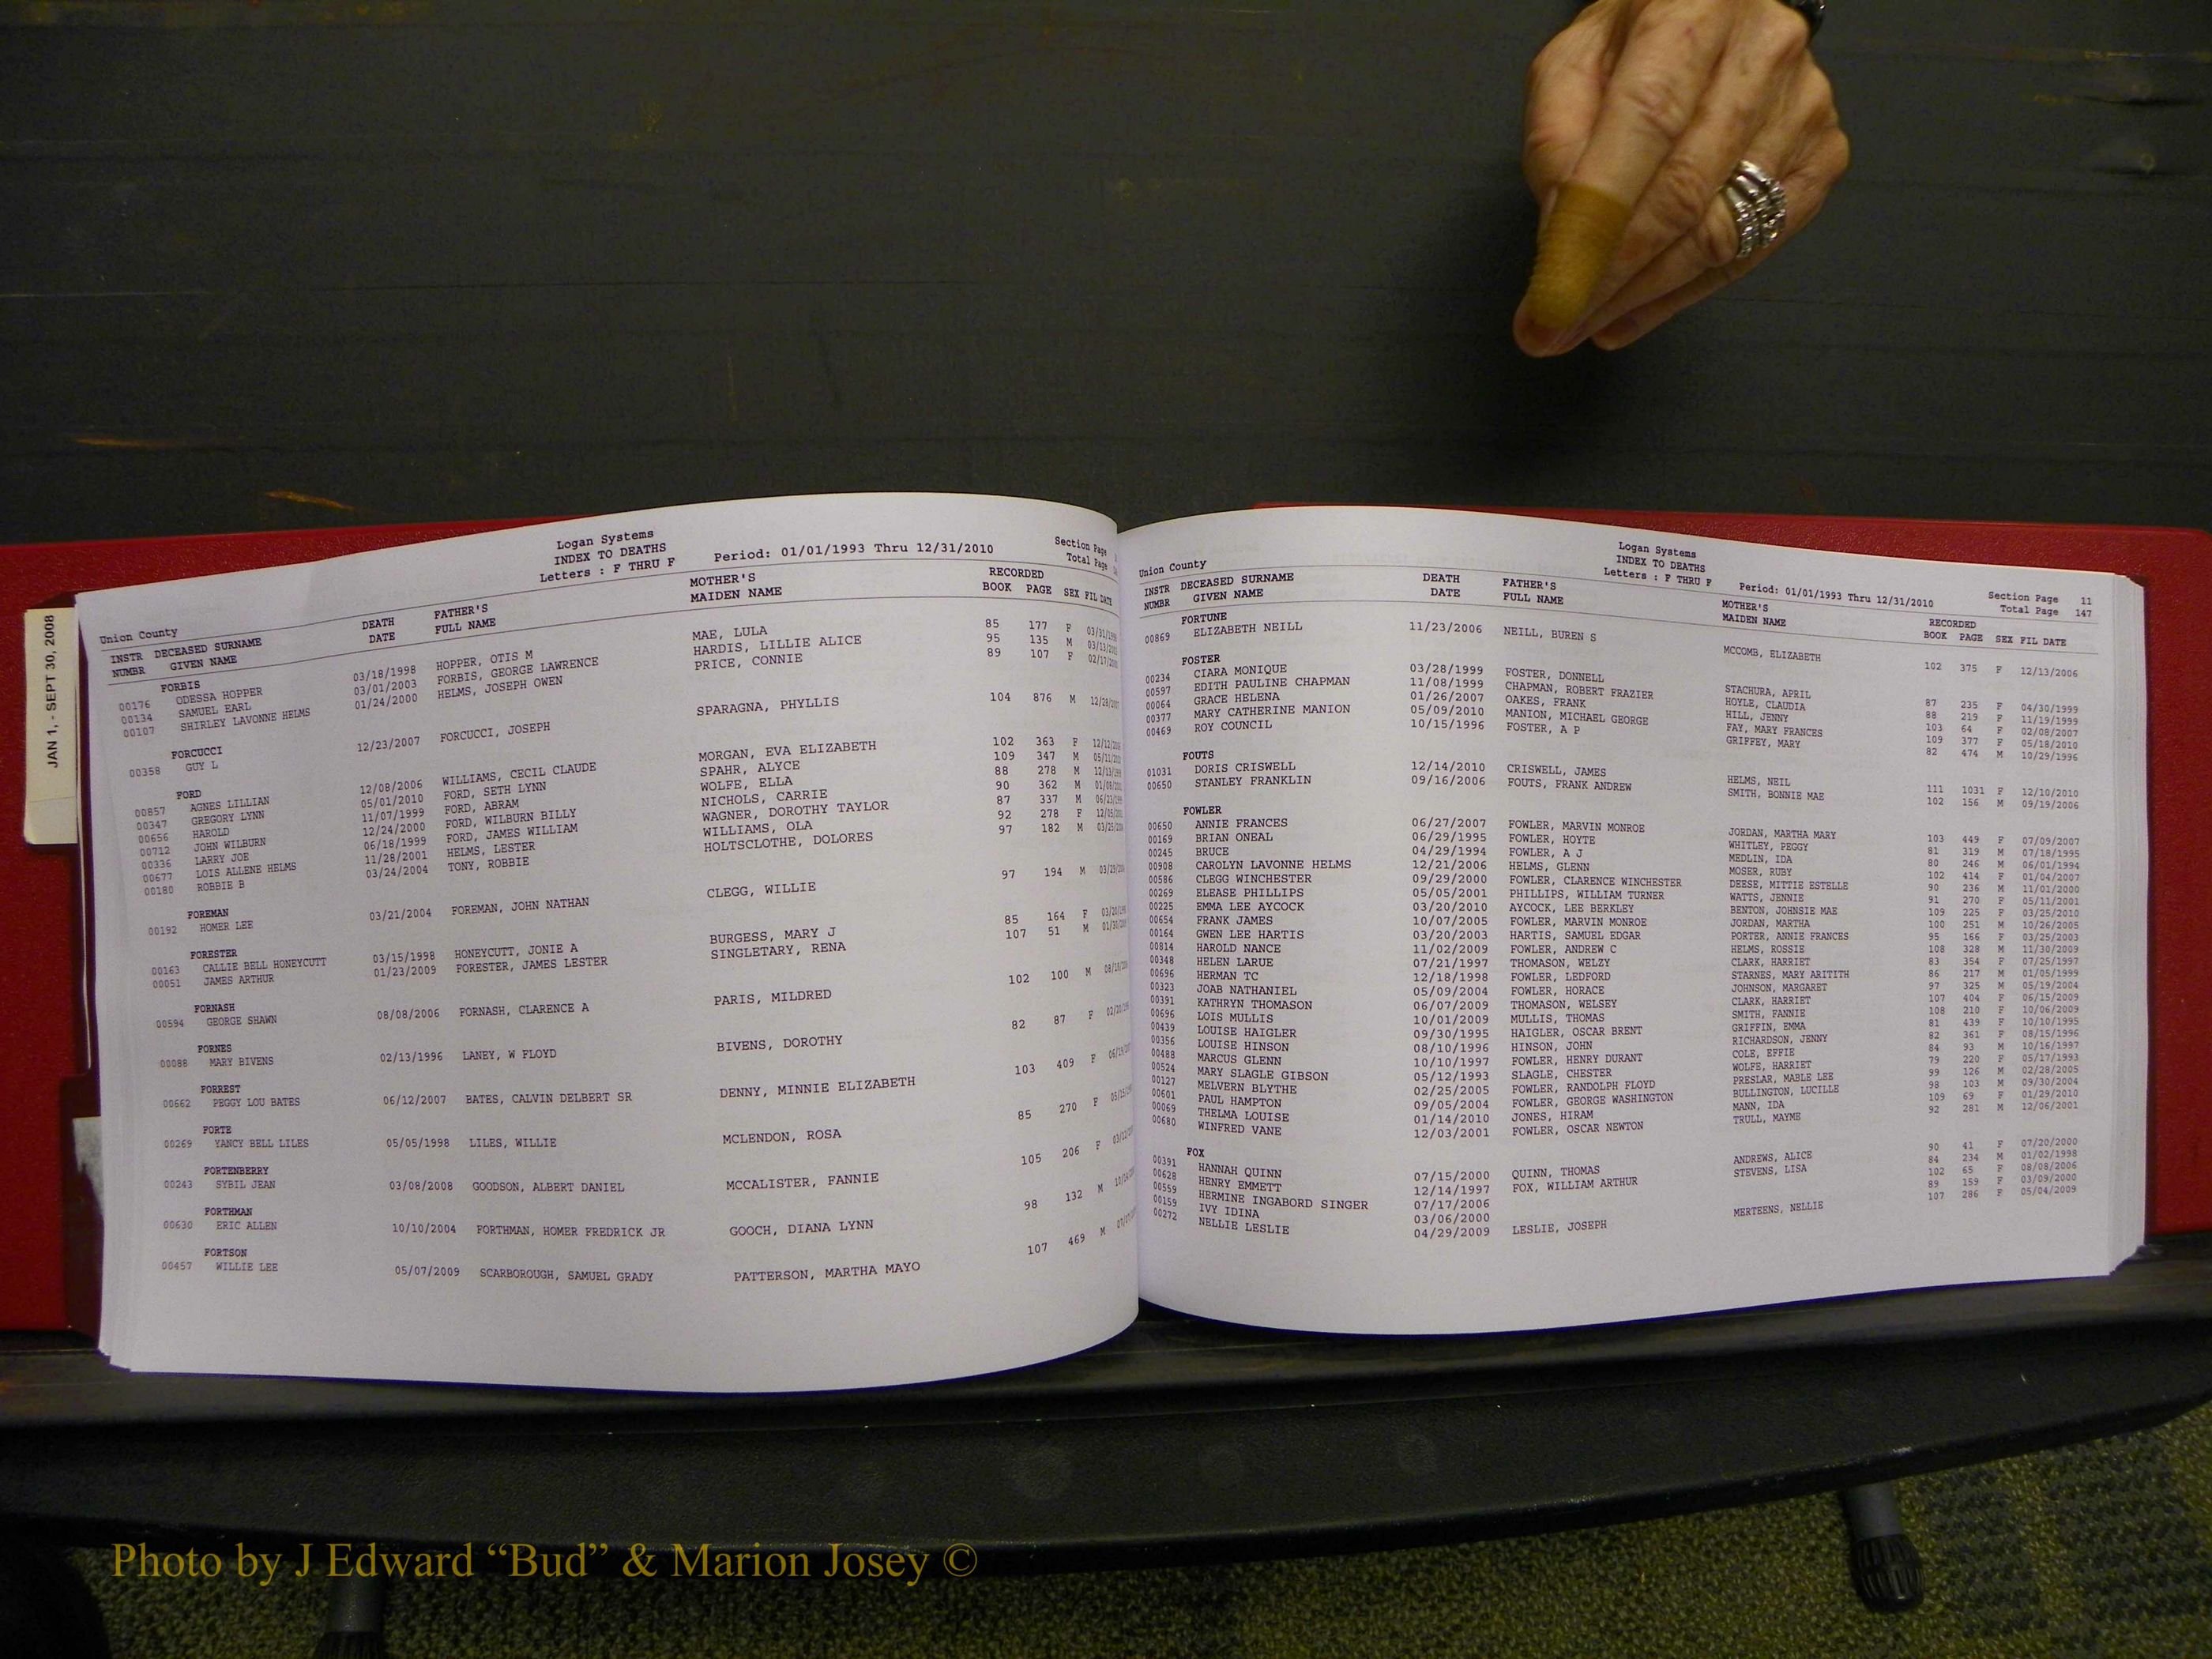 JAN 1, - SEPT 30, 2008
Logan Systems
INDEX TO DEATHS
Letters : F THRU F Period: 01/01/1993 Thru 12/31/2010 Section Page
Union County Total Page
INSTR DECEASED SURNAME DEATH FATHER'S MOTHER'S RECORDED
NUMBR GIVEN NAME DATE FULL NAME MAIDEN NAME BOOK PAGE SEX FIL DATE
FORBIS
00176 ODESSA HOPPER 03/18/1998 HOPPER, OTIS M MAE, LULA 85 177 F
00134 SAMUEL EARL 03/01/2003 FORBIS, GEORGE LAWRENCE HARDIS, LILLIE ALICE 95 135 M
00107 SHIRLEY LAVONNE HELMS 01/24/2000 HELMS, JOSEPH OWEN PRICE, CONNIE 89 107 F
FORCUCCI
00358 GUY L 12/23/2007 FORCUCCI, JOSEPH SPARAGNA, PHYLLIS 104 876 M
FORD
00857 AGNES LILLIAN 12/08/2006 WILLIAMS, CECIL CLAUDE MORGAN, EVA ELIZABETH 102 363 F
00347 GREGORY LYNN 05/01/2010 FORD, SETH LYNN SPAHR, ALYCE 109 347 M
00656 HAROLD 11/07/1999 FORD, ABRAM WOLFE, ELLA 88 278 M
00712 JOHN WILBURN 12/24/2000 FORD, WILBURN BILLY NICHOLS, CARRIE 90 362 M
00336 LARRY JOE 06/18/1999 FORD, JAMES WILLIAM WAGNER, DOROTHY TAYLOR 87 337 M
00677 LOIS ALLENE HELMS 11/28/2001 HELMS, LESTER WILLIAMS, OLA 92 278 F
00180 ROBBIE B 03/24/2004 TONY, ROBBIE HOLTSCLOTHE, DOLORES 97 182 M
FOREMAN
00192 HOMER LEE 03/21/2004 FOREMAN, JOHN NATHAN CLEGG, WILLIE 97 194 M
FORESTER
00163 CALLIE BELL HONEYCUTT 03/15/1998 HONEYCUTT, JONIE A BURGESS, MARY J 85 164 F
00051 JAMES ARTHUR 01/23/2009 FORESTER, JAMES LESTER SINGLETARY, RENA 107 51 M
FORNASH
00594 GEORGE SHAWN 08/08/2006 FORNASH, CLARENCE A PARIS, MILDRED 102 100 M
FORNES
00088 MARY BIVENS 02/13/1996 LANEY, W FLOYD BIVENS, DOROTHY 82 87 F
FORREST
00662 PEGGY LOU BATES 06/12/2007 BATES, CALVIN DELBERT SR DENNY, MINNIE ELIZABETH 103 409 F
FORTE
00269 YANCY BELL LILES 05/05/1998 LILES, WILLIE MCLENDON, ROSA 85 270 F
FORTENBERRY
00243 SYBIL JEAN 03/08/2008 GOODSON, ALBERT DANIEL MCCALISTER, FANNIE 105 206 F
FORTHMAN
00630 ERIC ALLEN 10/10/2004 FORTHMAN, HOMER FREDRICK JR GOOCH, DIANA LYNN 98 132 M
FORTSON
00457 WILLIE LEE 05/07/2009 SCARBOROUGH, SAMUEL GRADY PATTERSON, MARTHA MAYO 107 469 M
Logan Systems
INDEX TO DEATHS
Union County Letters : F THRU F Period: 01/01/1993 Thru 12/31/2010 Section Page 11
Total Page 147
INSTR DECEASED SURNAME DEATH FATHER'S MOTHER'S RECORDED
NUMBR GIVEN NAME DATE FULL NAME MAIDEN NAME BOOK PAGE SEX FIL DATE
FORTUNE
00869 ELIZABETH NEILL 11/23/2006 NEILL, BUREN S MCCOMB, ELIZABETH 102 375 F 12/13/2006
FOSTER
00234 CIARA MONIQUE 03/28/1999 FOSTER, DONNELL STACHURA, APRIL 87 235 F 04/30/1999
00597 EDITH PAULINE CHAPMAN 11/08/1999 CHAPMAN, ROBERT FRAZIER HOYLE, CLAUDIA 88 219 F 11/19/1999
00064 GRACE HELENA 01/26/2007 OAKES, FRANK HILL, JENNY 103 64 F 02/08/2007
00377 MARY CATHERINE MANION 05/09/2010 MANION, MICHAEL GEORGE FAY, MARY FRANCES 109 377 F 05/18/2010
00469 ROY COUNCIL 10/15/1996 FOSTER, A P GRIFFEY, MARY 82 474 M 10/29/1996
FOUTS
01031 DORIS CRISWELL 12/14/2010 CRISWELL, JAMES HELMS, NEIL 111 1031 F 12/10/2010
00650 STANLEY FRANKLIN 09/16/2006 FOUTS, FRANK ANDREW SMITH, BONNIE MAE 102 156 M 09/19/2006
FOWLER
00650 ANNIE FRANCES 06/27/2007 FOWLER, MARVIN MONROE JORDAN, MARTHA MARY 103 449 F 07/09/2007
00169 BRIAN ONEAL 06/29/1995 FOWLER, HOYTE WHITLEY, PEGGY 81 319 M 07/18/1995
00245 BRUCE 04/29/1994 FOWLER, A J MEDLIN, IDA 80 246 M 06/01/1994
00908 CAROLYN LAVONNE HELMS 12/21/2006 HELMS, GLENN MOSER, RUBY 102 414 F 01/04/2007
00586 CLEGG WINCHESTER 09/29/2000 FOWLER, CLARENCE WINCHESTER DEESE, MITTIE ESTELLE 90 236 M 11/01/2000
00269 ELEASE PHILLIPS 05/05/2001 PHILLIPS, WILLIAM TURNER WATTS, JENNIE 91 270 F 05/11/2001
00225 EMMA LEE AYCOCK 03/20/2010 AYCOCK, LEE BERKLEY BENTON, JOHNSIE MAE 109 225 F 03/25/2010
00654 FRANK JAMES 10/07/2005 FOWLER, MARVIN MONROE JORDAN, MARTHA 100 251 M 10/26/2005
00164 GWEN LEE HARTIS 03/20/2003 HARTIS, SAMUEL EDGAR PORTER, ANNIE FRANCES 95 166 F 03/25/2003
00814 HAROLD NANCE 11/02/2009 FOWLER, ANDREW C HELMS, ROSSIE 108 328 M 11/30/2009
00348 HELEN LARUE 07/21/1997 THOMASON, WELZY CLARK, HARRIET 83 354 F 07/25/1997
00696 HERMAN TC 12/18/1998 FOWLER, LEDFORD STARNES, MARY ARITITH 86 217 M 01/05/1999
00323 JOAB NATHANIEL 05/09/2004 FOWLER, HORACE JOHNSON, MARGARET 97 325 M 05/19/2004
00391 KATHRYN THOMASON 06/07/2009 THOMASON, WELSEY CLARK, HARRIET 107 404 F 06/15/2009
00696 LOIS MULLIS 10/01/2009 MULLIS, THOMAS SMITH, FANNIE 108 210 F 10/06/2009
00439 LOUISE HAIGLER 09/30/1995 HAIGLER, OSCAR BRENT GRIFFIN, EMMA 81 439 F 10/10/1995
00356 LOUISE HINSON 08/10/1996 HINSON, JOHN RICHARDSON, JENNY 82 361 F 08/15/1996
00488 MARCUS GLENN 10/10/1997 FOWLER, HENRY DURANT COLE, EFFIE 84 93 M 10/16/1997
00524 MARY SLAGLE GIBSON 05/12/1993 SLAGLE, CHESTER WOLFE, HARRIET 79 220 F 05/17/1993
00127 MELVERN BLYTHE 02/25/2005 FOWLER, RANDOLPH FLOYD PRESLAR, MABLE LEE 99 126 M 02/28/2005
00601 PAUL HAMPTON 09/05/2004 FOWLER, GEORGE WASHINGTON BULLINGTON, LUCILLE 98 103 M 09/30/2004
00069 THELMA LOUISE 01/14/2010 JONES, HIRAM MANN, IDA 109 69 F 01/29/2010
00680 WINFRED VANE 12/03/2001 FOWLER, OSCAR NEWTON TRULL, MAYME 92 281 M 12/06/2001
FOX
00391 HANNAH QUINN 07/15/2000 QUINN, THOMAS ANDREWS, ALICE 90 41 F 07/20/2000
00628 HENRY EMMETT 12/14/1997 FOX, WILLIAM ARTHUR STEVENS, LISA 84 234 M 01/02/1998
00559 HERMINE INGABORD SINGER 07/17/2006 102 65 F 08/08/2006
00159 IVY IDINA 03/06/2000 89 159 F 03/09/2000
00272 NELLIE LESLIE 04/29/2009 LESLIE, JOSEPH MERTEENS, NELLIE 107 286 F 05/04/2009
Photo by J Edward “Bud” & Marion Josey ©